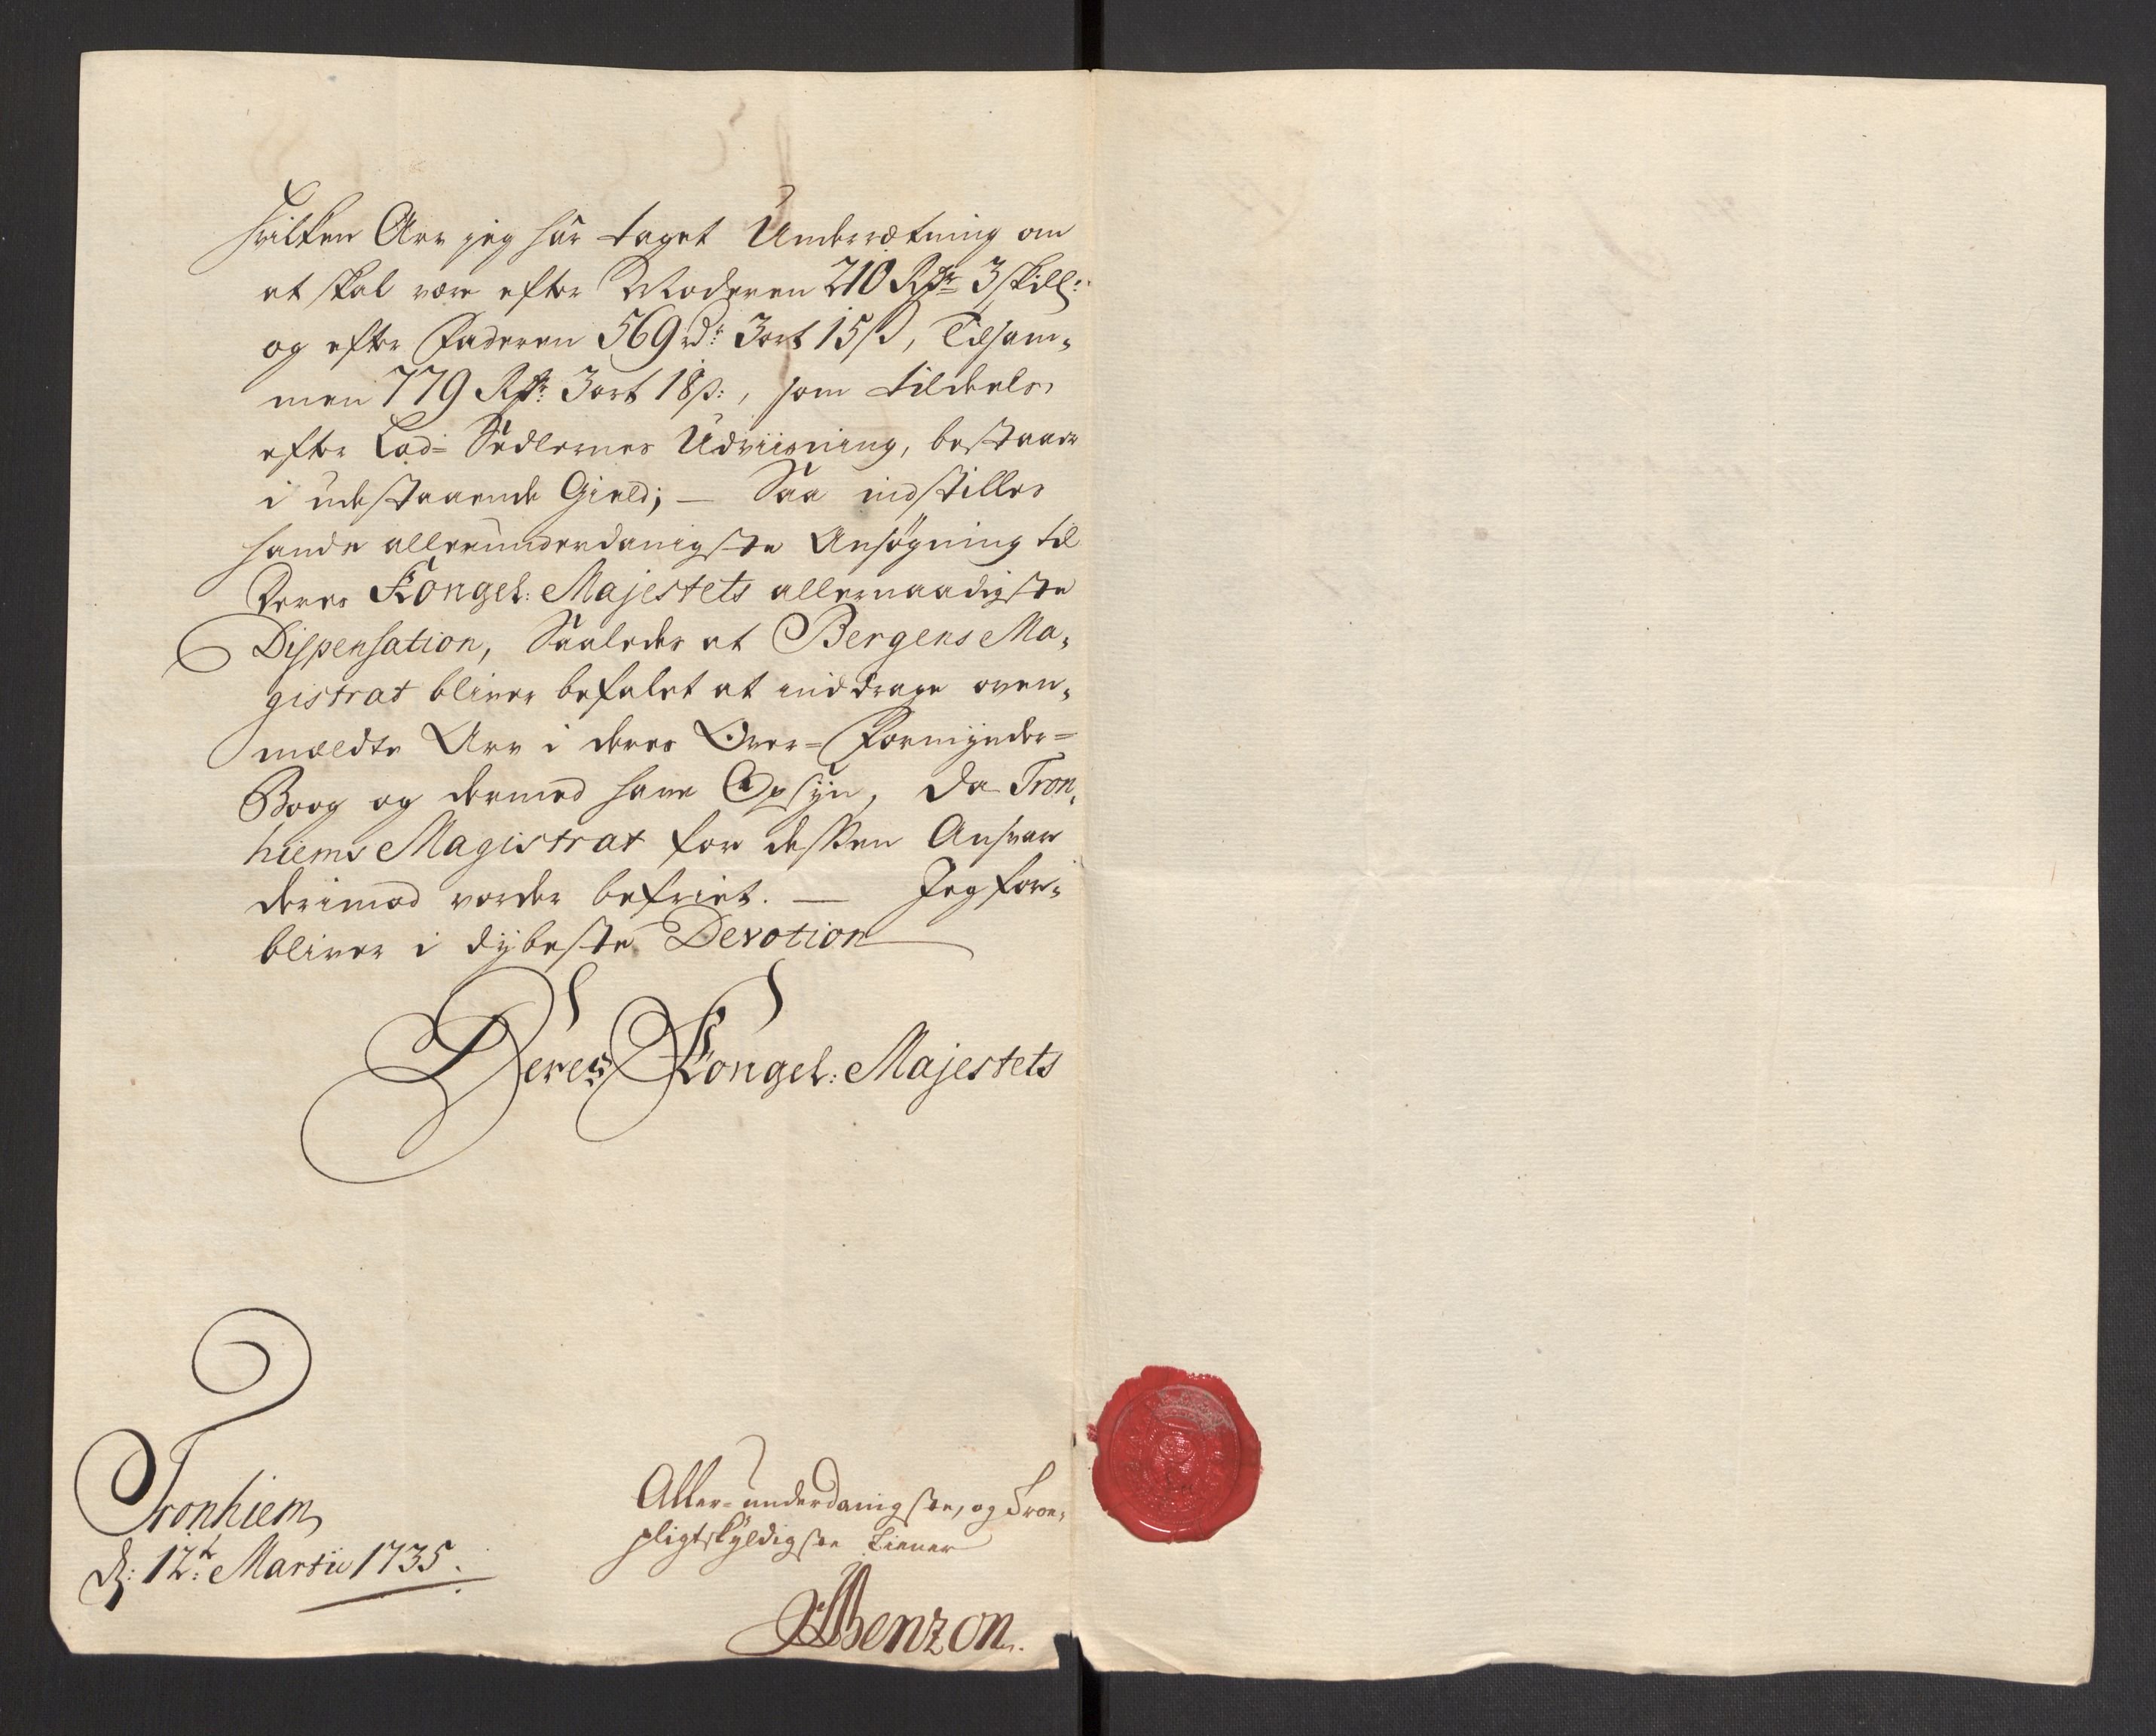 hvilken Arv jeg har taget Underrætning om
at skal være efter Moderen 210 Rdr 3 skill:
og efter Faderen 569 rd: 3 ort 15 s, Tilsam-
men 779 Rdr: 3 ort 18 s:, som tildeels,
efter Lod-Sedlernes Udviisning, bestaaer
i udestaaende Gield; — Saa indstilles
hands allerunderdanigste Ansøgning til
Deres Kongel: Majestets allernaadigste
Dispensation, Saaledes at Bergens Ma-
gistrat bliver befalet at inddrage oven-
mældte Arv i deres Over-Formynder-
Boog og dermed have Opsÿn, da Tron-
hiems Magistrat for dessen Ansvar
derimod vorder befriet. — Jeg for-
bliver i dÿbeste Devotion
Deres Kongel: Majestets
Tronhiem
d: 12te Martii 1735.
Aller-underdanigste, og Troe-
pligtskyldigste tiener
Benzon.